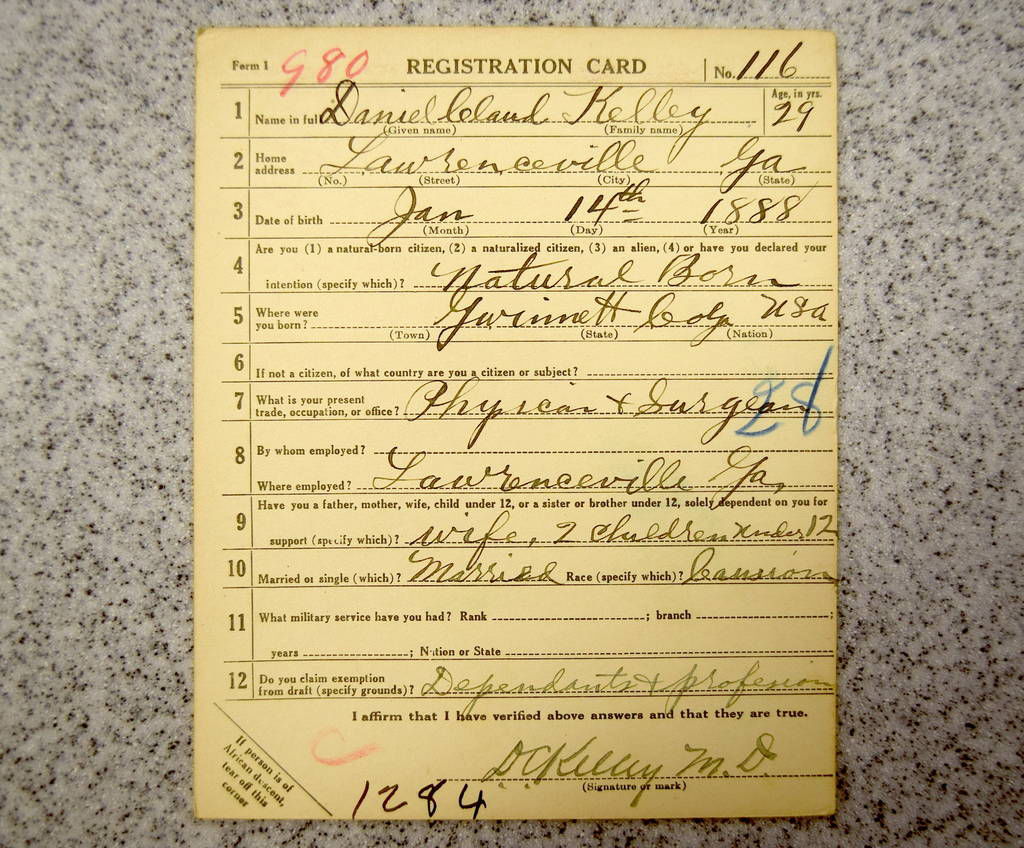 Form 1 980 REGISTRATION CARD No. 116
1 Name in full Daniel Claud Kelley Age, in yrs. 29
(Given name) (Family name)
2 Home address Lawrenceville Ga
(No.) (Street) (City) (State)
3 Date of birth Jan 14th 1888
(Month) (Day) (Year)
Are you (1) a natural-born citizen, (2) a naturalized citizen, (3) an alien, (4) or have you declared your
4 intention (specify which)? Natural Born
5 Where were you born? Gwinnett Co Ga USA
(Town) (State) (Nation)
6 If not a citizen, of what country are you a citizen or subject?
7 What is your present trade, occupation, or office? Physician + Surgeon 28
8 By whom employed?
Where employed? Lawrenceville Ga,
Have you a father, mother, wife, child under 12, or a sister or brother under 12, solely dependent on you for
9 support (specify which)? wife, 2 children under 12
10 Married or single (which)? Married Race (specify which)?
11 What military service have you had? Rank ; branch ;
years ; Nation or State
12 Do you claim exemption from draft (specify grounds)? Dependants + profession
I affirm that I have verified above answers and that they are true.
D.C Kelley M.D
(Signature or mark)
If person is of
African descent,
tear off this
corner
C
1284